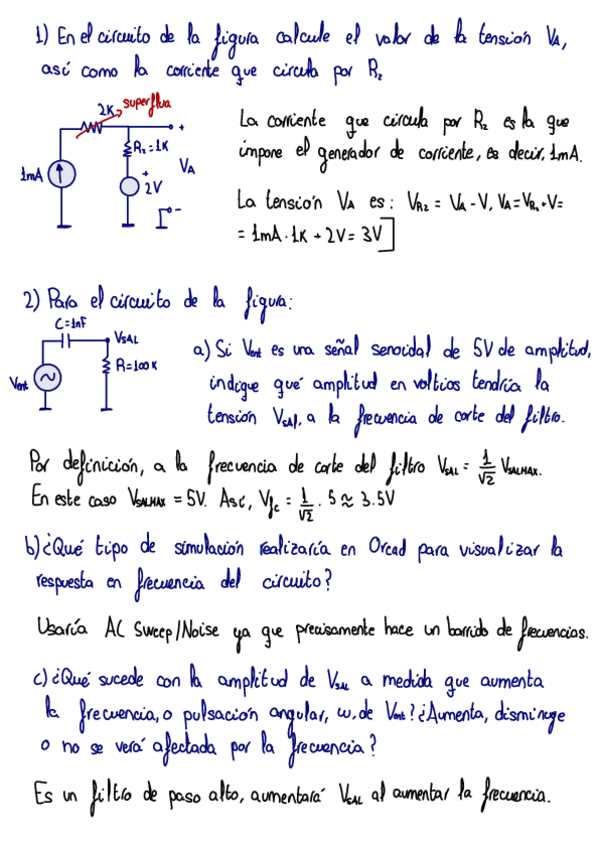 1) En el circuito de la figura calcule el valor de la tensión VA,
así como la corriente que circula por R2
2K superflua
+
R2=1K
VA
1mA
+
2V
-
La corriente que circula por R2 es la que
impone el generador de corriente, es decir, 1mA.
La tensión VA es: VR2 = VA - V, VA = VR2 + V =
= 1mA · 1K + 2V = 3V]
2) Para el circuito de la figura:
C=1nF
VSAL
R=100K
Vent
a) Si Vent es una señal senoidal de 5V de amplitud,
indique qué amplitud en voltios tendría la
tensión VSAL, a la frecuencia de corte del filtro.
Por definición, a la frecuencia de corte del filtro VSAL = 1/√2 VSALMAX.
En este caso VSALMAX = 5V. Así, Vfc = 1/√2 · 5 ≈ 3.5V
b) ¿Qué tipo de simulación realizaría en Orcad para visualizar la
respuesta en frecuencia del circuito?
Usaría AC Sweep/Noise ya que precisamente hace un barrido de frecuencias.
c) ¿Qué sucede con la amplitud de VSAL a medida que aumenta
la frecuencia, o pulsación angular, ω, de Vent? ¿Aumenta, disminuye
o no se verá afectada por la frecuencia?
Es un filtro de paso alto, aumentará VSAL al aumentar la frecuencia.